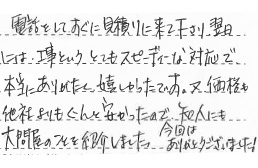 電話をしてすぐに見積りに来て下さり翌日
には、工事というとてもスピーディーな対応で
本当にありがたく嬉しかったです。又価格も
他社よりもぐんと安かったので、知人にも
大問屋のことを紹介しました。今回は
ありがとうございました!